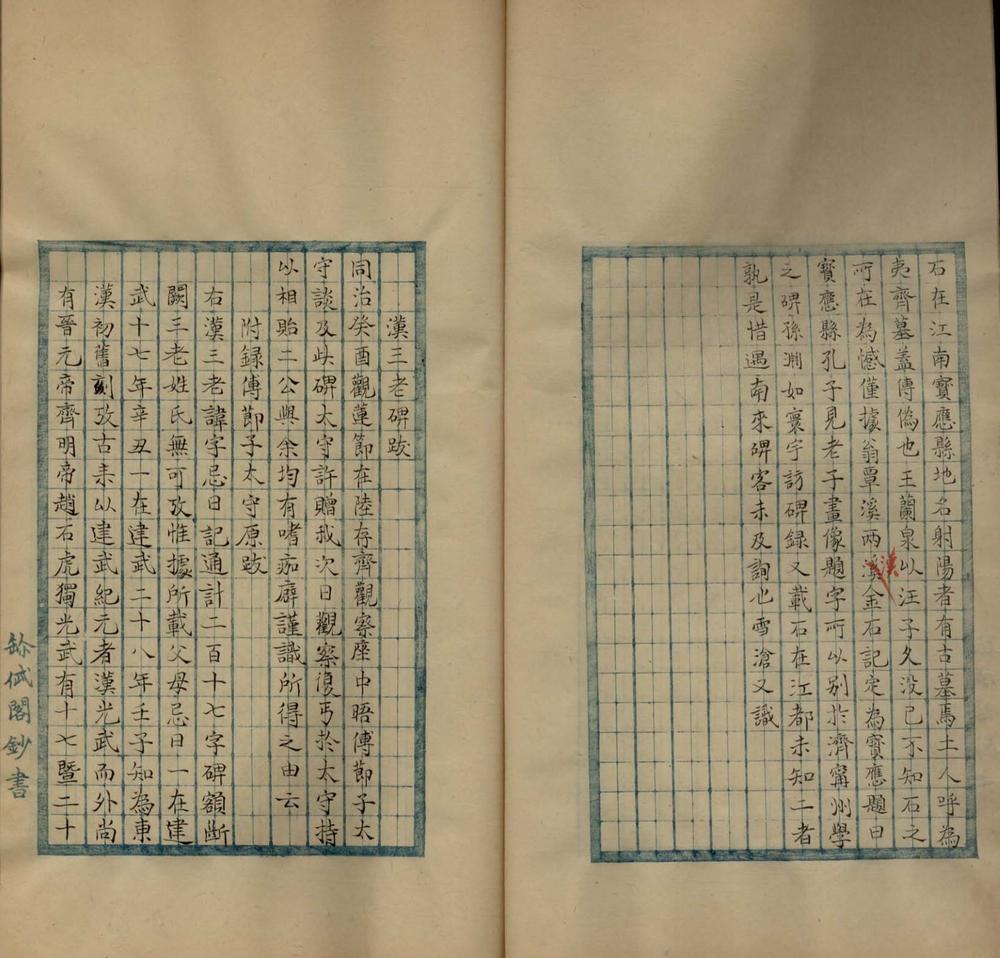 石在江南寶應縣地名射陽者有古墓焉土人呼為
夷齊墓蓋傳偽也王蘭泉以汪子久没已不知石之
所在為憾僅據翁覃溪兩溪金石記定為寶應題曰
漢
寶應縣孔子見老子畫像題字所以别於濟甯州學
之碑孫淵如寰宇訪碑録又載石在江都未知二者
孰是惜遇南來碑客未及詢也雪滄又識
漢三老碑跋
同治癸酉觀蓮節在陸存齊觀察座中晤傅節子太
守談及此碑太守許贈我次日觀察復丐於太守持
以相貽二公與余均有嗜痂癖謹識所得之由云
附録傅節子太守原跋
右漢三老諱字忌日記通計二百十七字碑額斷
闕三老姓氏無可攷惟據所載父母忌日一在建
武十七年辛丑一在建武二十八年壬子知為東
漢初舊刻攷古来以建武紀元者漢光武而外尚
有晉元帝齊明帝趙石虎獨光武有十七暨二十
閣鈔書